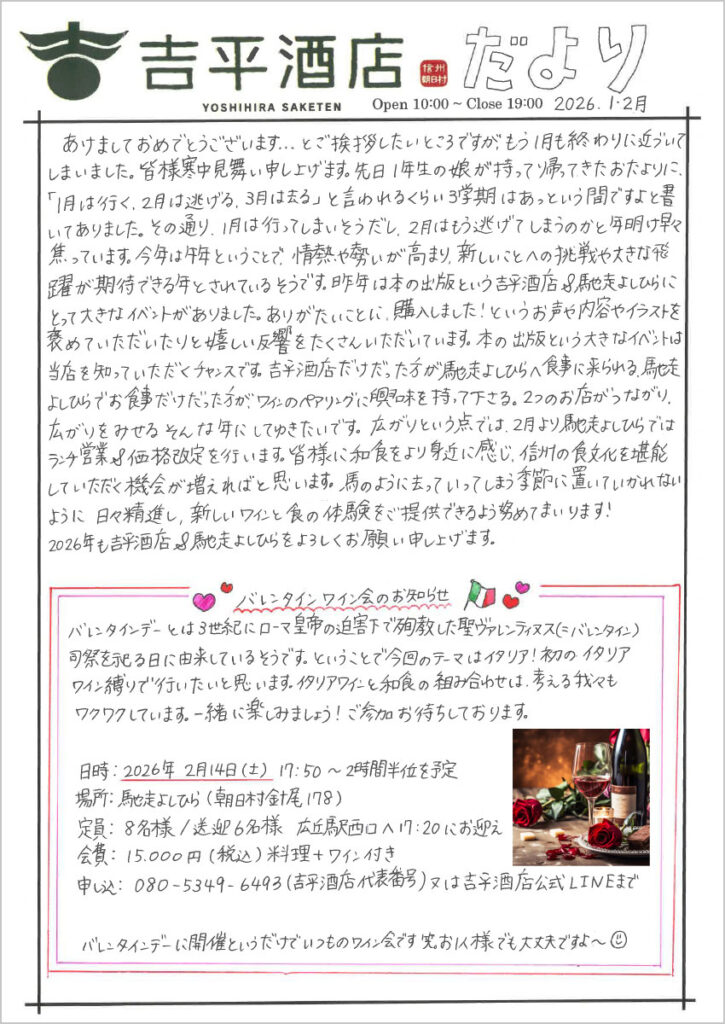 吉平酒店 信州朝日村 だより
YOSHIHIRA SAKETEN Open 10:00 ~ Close 19:00 2026. 1・2月
あけましておめでとうございます...とご挨拶したいところですが、もう1月も終わりに近づいて
しまいました。皆様寒中見舞い申し上げます。先日1年生の娘が持って帰ってきたおたよりに、
「1月は行く、2月は逃げる、3月は去る」と言われるくらい3学期はあっという間ですよと書
いてありました。その通り、1月は行ってしまいそうだし、2月はもう逃げてしまうのかと年明け早々
焦っています。今年は午年ということで、情熱や勢いが高まり、新しいことへの挑戦や大きな飛
躍が期待できる年とされているそうです。昨年は本の出版という吉平酒店&馳走よしひらに
とって大きなイベントがありました。ありがたいことに、購入しました!というお声や内容やイラストを
褒めていただいたりと嬉しい反響をたくさんいただいています。本の出版という大きなイベントは
当店を知っていただくチャンスです。吉平酒店だけだった方が馳走よしひらへ食事に来られる、馳走
よしひらでお食事だけだった方が、ワインのペアリングに興味を持って下さる。2つのお店がつながり、
広がりをみせるそんな年にしてゆきたいです。広がりという点では、2月より馳走よしひらでは
ランチ営業&価格改定を行います。皆様に和食をより身近に感じ、信州の食文化を堪能
していただく機会が増えればと思います。馬のように去っていってしまう季節に置いていかれない
ように日々精進し、新しいワインと食の体験をご提供できるよう努めてまいります!
2026年も吉平酒店&馳走よしひらをよろしくお願い申し上げます。
バレンタインワイン会のお知らせ
バレンタインデーとは3世紀にローマ皇帝の迫害下で殉教した聖ヴァレンティヌス(=バレンタイン)
司祭を祀る日に由来しているそうです。ということで今回のテーマはイタリア!初のイタリア
ワイン縛りで行いたいと思います。イタリアワインと和食の組み合わせは、考える我々も
ワクワクしています。一緒に楽しみましょう!ご参加お待ちしております。
日時:2026年 2月14日(土) 17:50~2時間半位を予定
場所:馳走よしひら(朝日村針尾178)
定員:8名様/送迎6名様 広丘駅西口へ17:20にお迎え
会費:15.000円(税込)料理+ワイン付き
申し込:080-5349-6493(吉平酒店代表番号)又は吉平酒店公式LINEまで
バレンタインデーに開催というだけでいつものワイン会です笑。お1人様でも大丈夫ですよ~